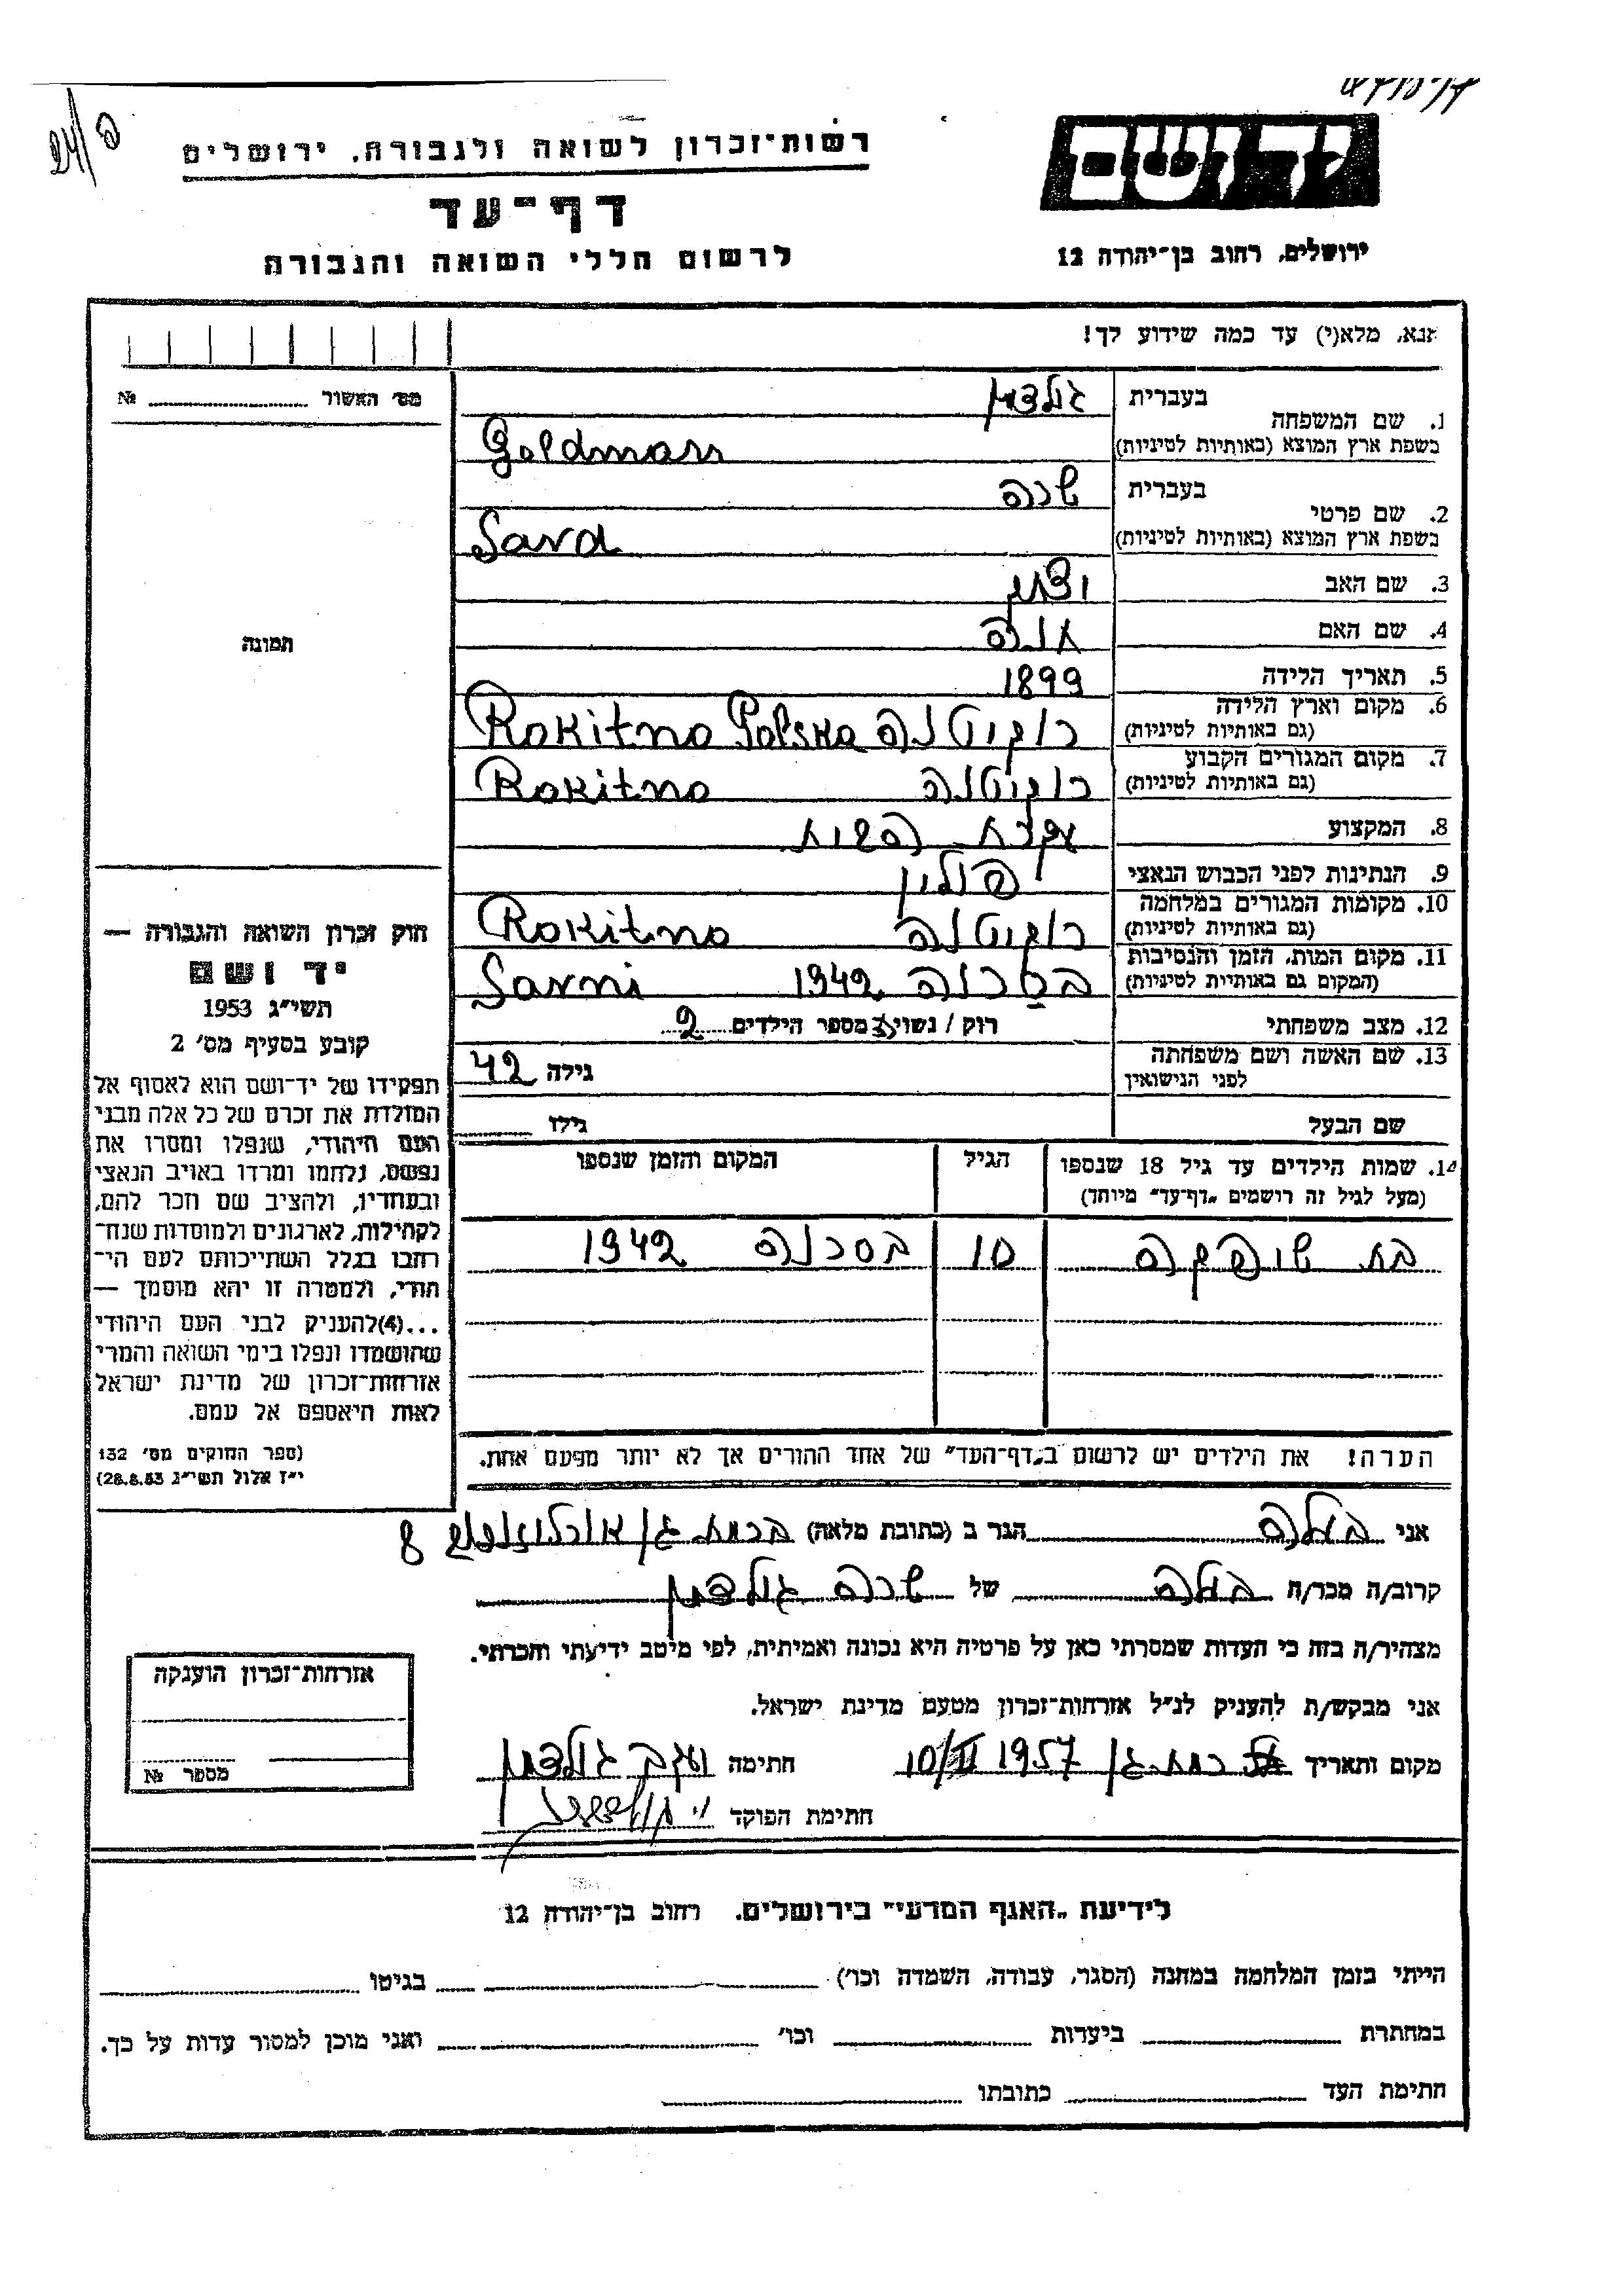 רשות־זכרון לשואה ולגבורה, ירושלים
דף־עד
לרשום חללי השואה והגבורה
יד ושם
ירושלים, רחוב בן־יהודה 12
אנא, מלא(י) עד כמה שידוע לך!
מס׳ האשור № 
1. שם המשפחה
בעברית גולדמן
בשפת ארץ המוצא (באותיות לטיניות) Goldman
2. שם פרטי
בעברית שרה
בשפת ארץ המוצא (באותיות לטיניות) Sara
3. שם האב
4. שם האם
5. תאריך הלידה 1899
6. מקום וארץ הלידה
(גם באותיות לטיניות) רוקיטנה Rokitno Polska
7. מקום המגורים הקבוע
(גם באותיות לטיניות) רוקיטנה Rokitno
8. המקצוע עקרת הבית
9. הנתינות לפני הכבוש הנאצי פולין
10. מקומות המגורים במלחמה
(גם באותיות לטיניות) רוקיטנה Rokitno
11. מקום המות, הזמן והנסיבות
(המקום גם באותיות לטיניות) בסרנה 1942 Sarni
12. מצב משפחתי רוק / נשוי מספר הילדים 2
13. שם האשה ושם משפחתה
לפני הנישואין גילה 42
שם הבעל גילו
תמונה
14. שמות הילדים עד גיל 18 שנספו
(מעל לגיל זה רושמים „דף־עד״ מיוחד)
הגיל
המקום והזמן שנספו
בת 10 בסרנה 1942
הערה! את הילדים יש לרשום ב„דף־העד״ של אחד ההורים אך לא יותר מפעם אחת.
חוק זכרון השואה והגבורה —
יד ושם
תשי״ג 1953
קובע בסעיף מס׳ 2
תפקידו של יד־ושם הוא לאסוף אל
המולדת את זכרם של כל אלה מבני
העם היהודי, שנפלו ומסרו את
נפשם, נלחמו ומרדו באויב הנאצי
ובעוזריו, ולהציב שם וזכר להם,
לקהילות, לארגונים ולמוסדות שנח־
רבו בגלל השתייכותם לעם הי־
הודי, ולמטרה זו יהא מוסמך —
...(4)להעניק לבני העם היהודי
שהושמדו ונפלו בימי השואה והמרי
אזרחות־זכרון של מדינת ישראל
לאות היאספם אל עמם.
(ספר החוקים מס׳ 132
י״ז אלול תשי״ג 28.8.53)
אני בעלה הגר ב (כתובת מלאה) ברמת גן 8
קרוב/ה מכר/ה בעלה של שרה גולדמן
מצהיר/ה בזה כי העדות שמסרתי כאן על פרטיה היא נכונה ואמיתית, לפי מיטב ידיעתי והכרתי.
אני מבקש/ת להעניק לנ״ל אזרחות־זכרון מטעם מדינת ישראל.
מקום ותאריך רמת גן 1957 חתימה יעקב גולדמן
חתימת הפוקד
אזרחות־זכרון הוענקה
מספר №
לידיעת „האגף המדעי״ בירושלים. רחוב בן־יהודה 12
הייתי בזמן המלחמה במחנה (הסגר, עבודה, השמדה וכו׳) בגיטו
במחתרת ביערות וכו׳ ואני מוכן למסור עדות על כך.
חתימת העד כתובתו